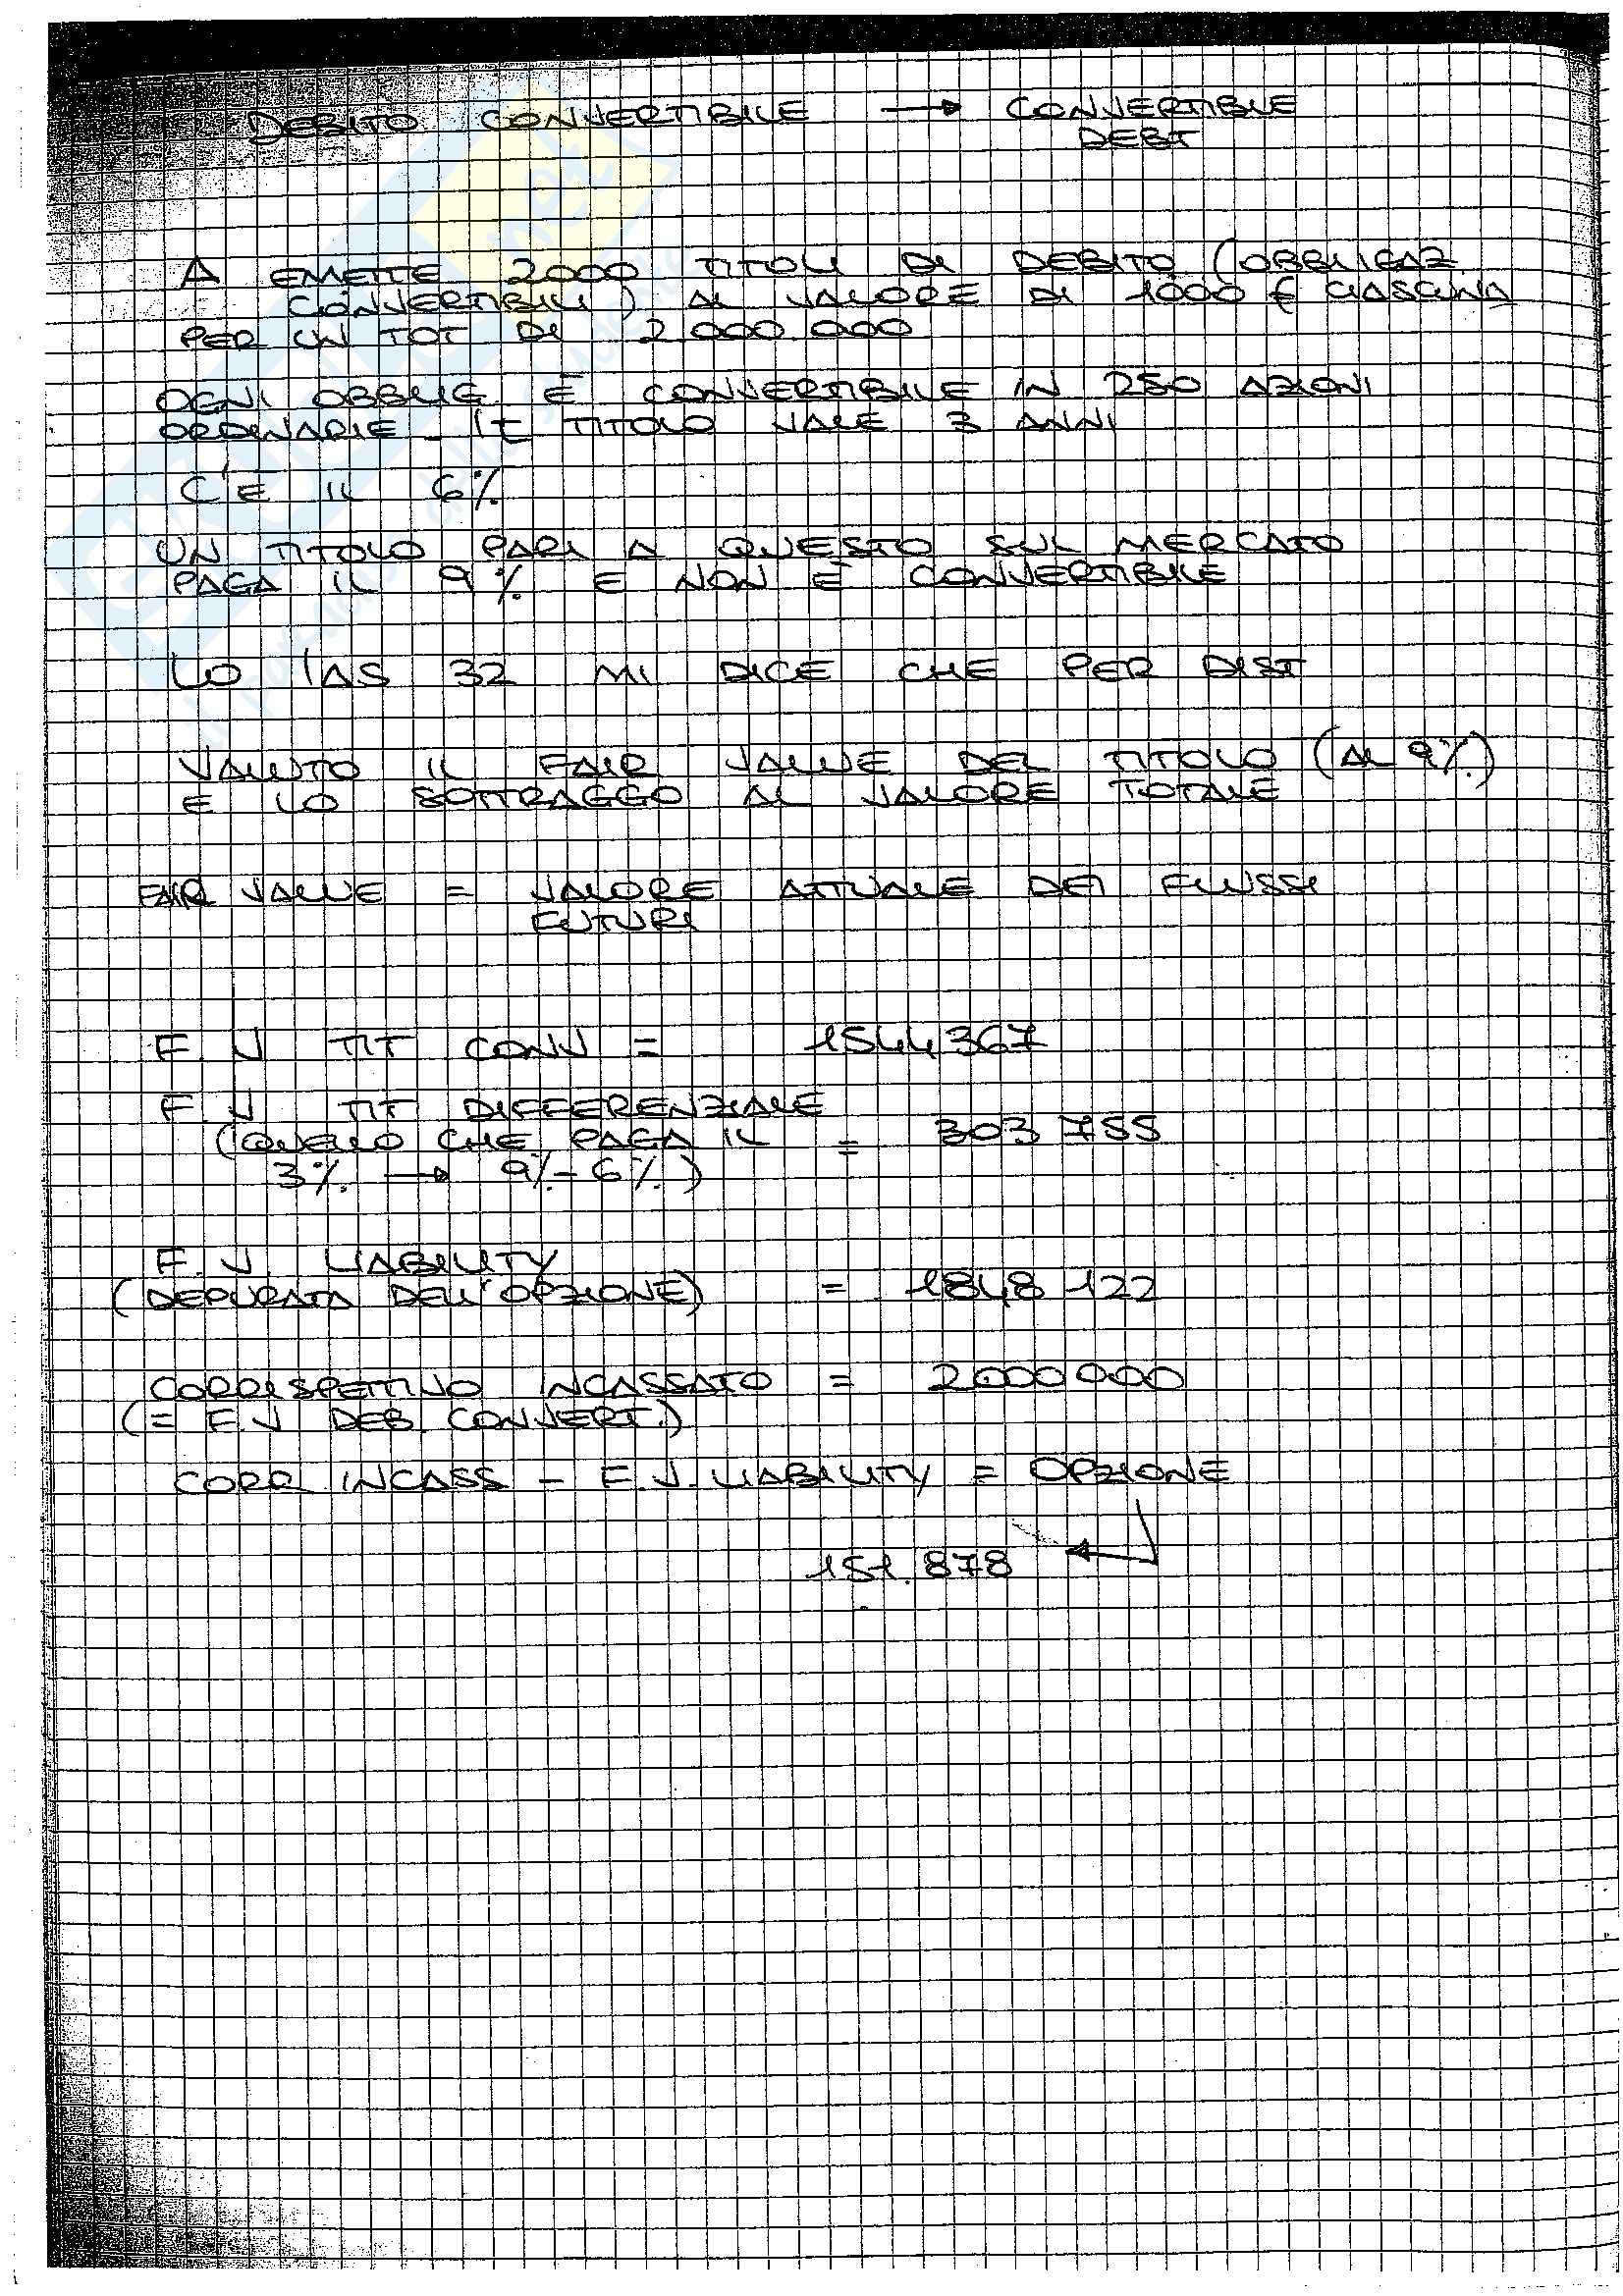 DEBITO CONVERTIBILE → CONVERTIBLE
DEBT
A EMETTE 2000 TITOLI DI DEBITO (OBBLIGAZ.
CONVERTIBILI) AL VALORE DI 1000 € CIASCUNA
PER UN TOT DI 2.000.000
OGNI OBBLIG È CONVERTIBILE IN 250 AZIONI
ORDINARIE - IL TITOLO VALE 3 ANNI
C'È IL 6%
UN TITOLO PARI A QUESTO SUL MERCATO
PAGA IL 9% E NON È CONVERTIBILE
LO IAS 32 MI DICE CHE PER DIST
VALUTO IL FAIR VALUE DEL TITOLO (AL 9%)
E LO SOTTRAGGO AL VALORE TOTALE
FAIR VALUE = VALORE ATTUALE DEI FLUSSI
FUTURI
F. V TIT CONV = 1544367
F. V TIT DIFFERENZIALE
(QUELLO CHE PAGA IL = 303 755
3% → 9% - 6%)
F. V. LIABILITY
(DEPURATA DELL'OPZIONE) = 1848 122
CORRISPETTIVO INCASSATO = 2000000
(= F.V DEB. CONVERT.)
CORR INCASS - F.V. LIABILITY = OPZIONE
151.878 ←